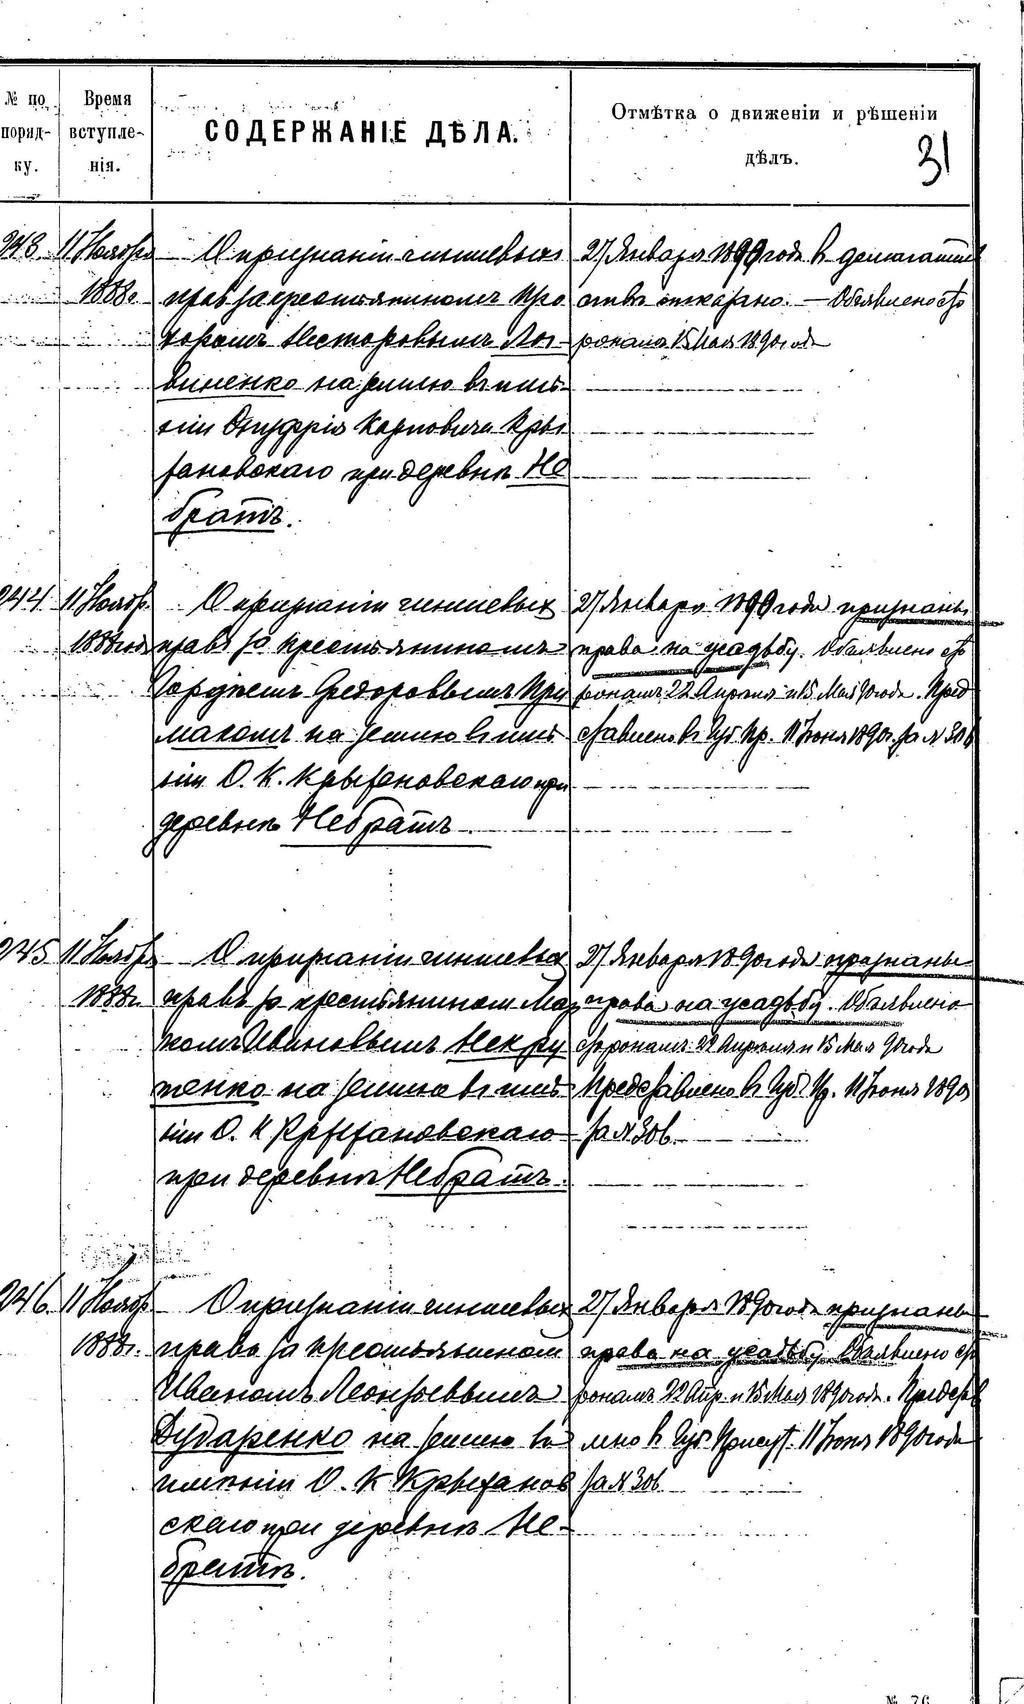 № по порядку.
Время вступленія.
СОДЕРЖАНІЕ ДѢЛА.
Отмѣтка о движеніи и рѣшеніи дѣлъ.
31
243
11 Ноября
1888г.
О признаніи чиншевыхъ
правъ за крестьяниномъ Про
хоромъ Несторовымъ Лог
виненко на землю въ имѣ
ніи Онуфрія Карповича Кры
жановскаго при деревнѣ Не
братъ.
27 Января 1890 года въ
отказано. — Объявлено сто
ронамъ 15 Мая 1890 года
244
11 Ноябр.
1888 год
О признаніи чиншевыхъ
правъ за крестьяниномъ
Федоровымъ При
макомъ на землю въ имѣ
ніи О. К. Крыжановскаго при
деревнѣ Небратъ
27 Января 1890 года признаны
права на усадьбу. Объявлено сто
ронамъ 22 Апрѣля и 15 Мая 90 года. Пред
ставлено въ Губ. Пр. 11 Іюня 1890г. за № 306
245
11 Ноябр
1888г.
О признаніи чиншевыхъ
правъ за крестьяниномъ
Ивановымъ Некру
тенко на землю въ имѣ
ніи О. К Крыжановскаго
при деревнѣ Небратъ.
27 Января 1890 года признаны
права на усадьбу. Объявлено
сторонамъ 22 Апрѣля и 15 Мая 90 года
Представлено въ Губ. Пр. 11 Іюня 1890
за № 306.
246
11 Ноябр
1888г.
О признаніи чиншевыхъ
права за крестьяниномъ
Иваномъ Леонтьевымъ
Дударенко на землю въ
имѣніи О. К Крыжанов
скаго при деревнѣ Не-
братъ.
27 Января 1890 года признаны
права на усадьбу. Объявлено сто
ронамъ 22 Апр. и 15 Мая 1890 года. Представ
лено въ Губ. Присут. 11 Іюня 1890 года
за № 306
№ 76